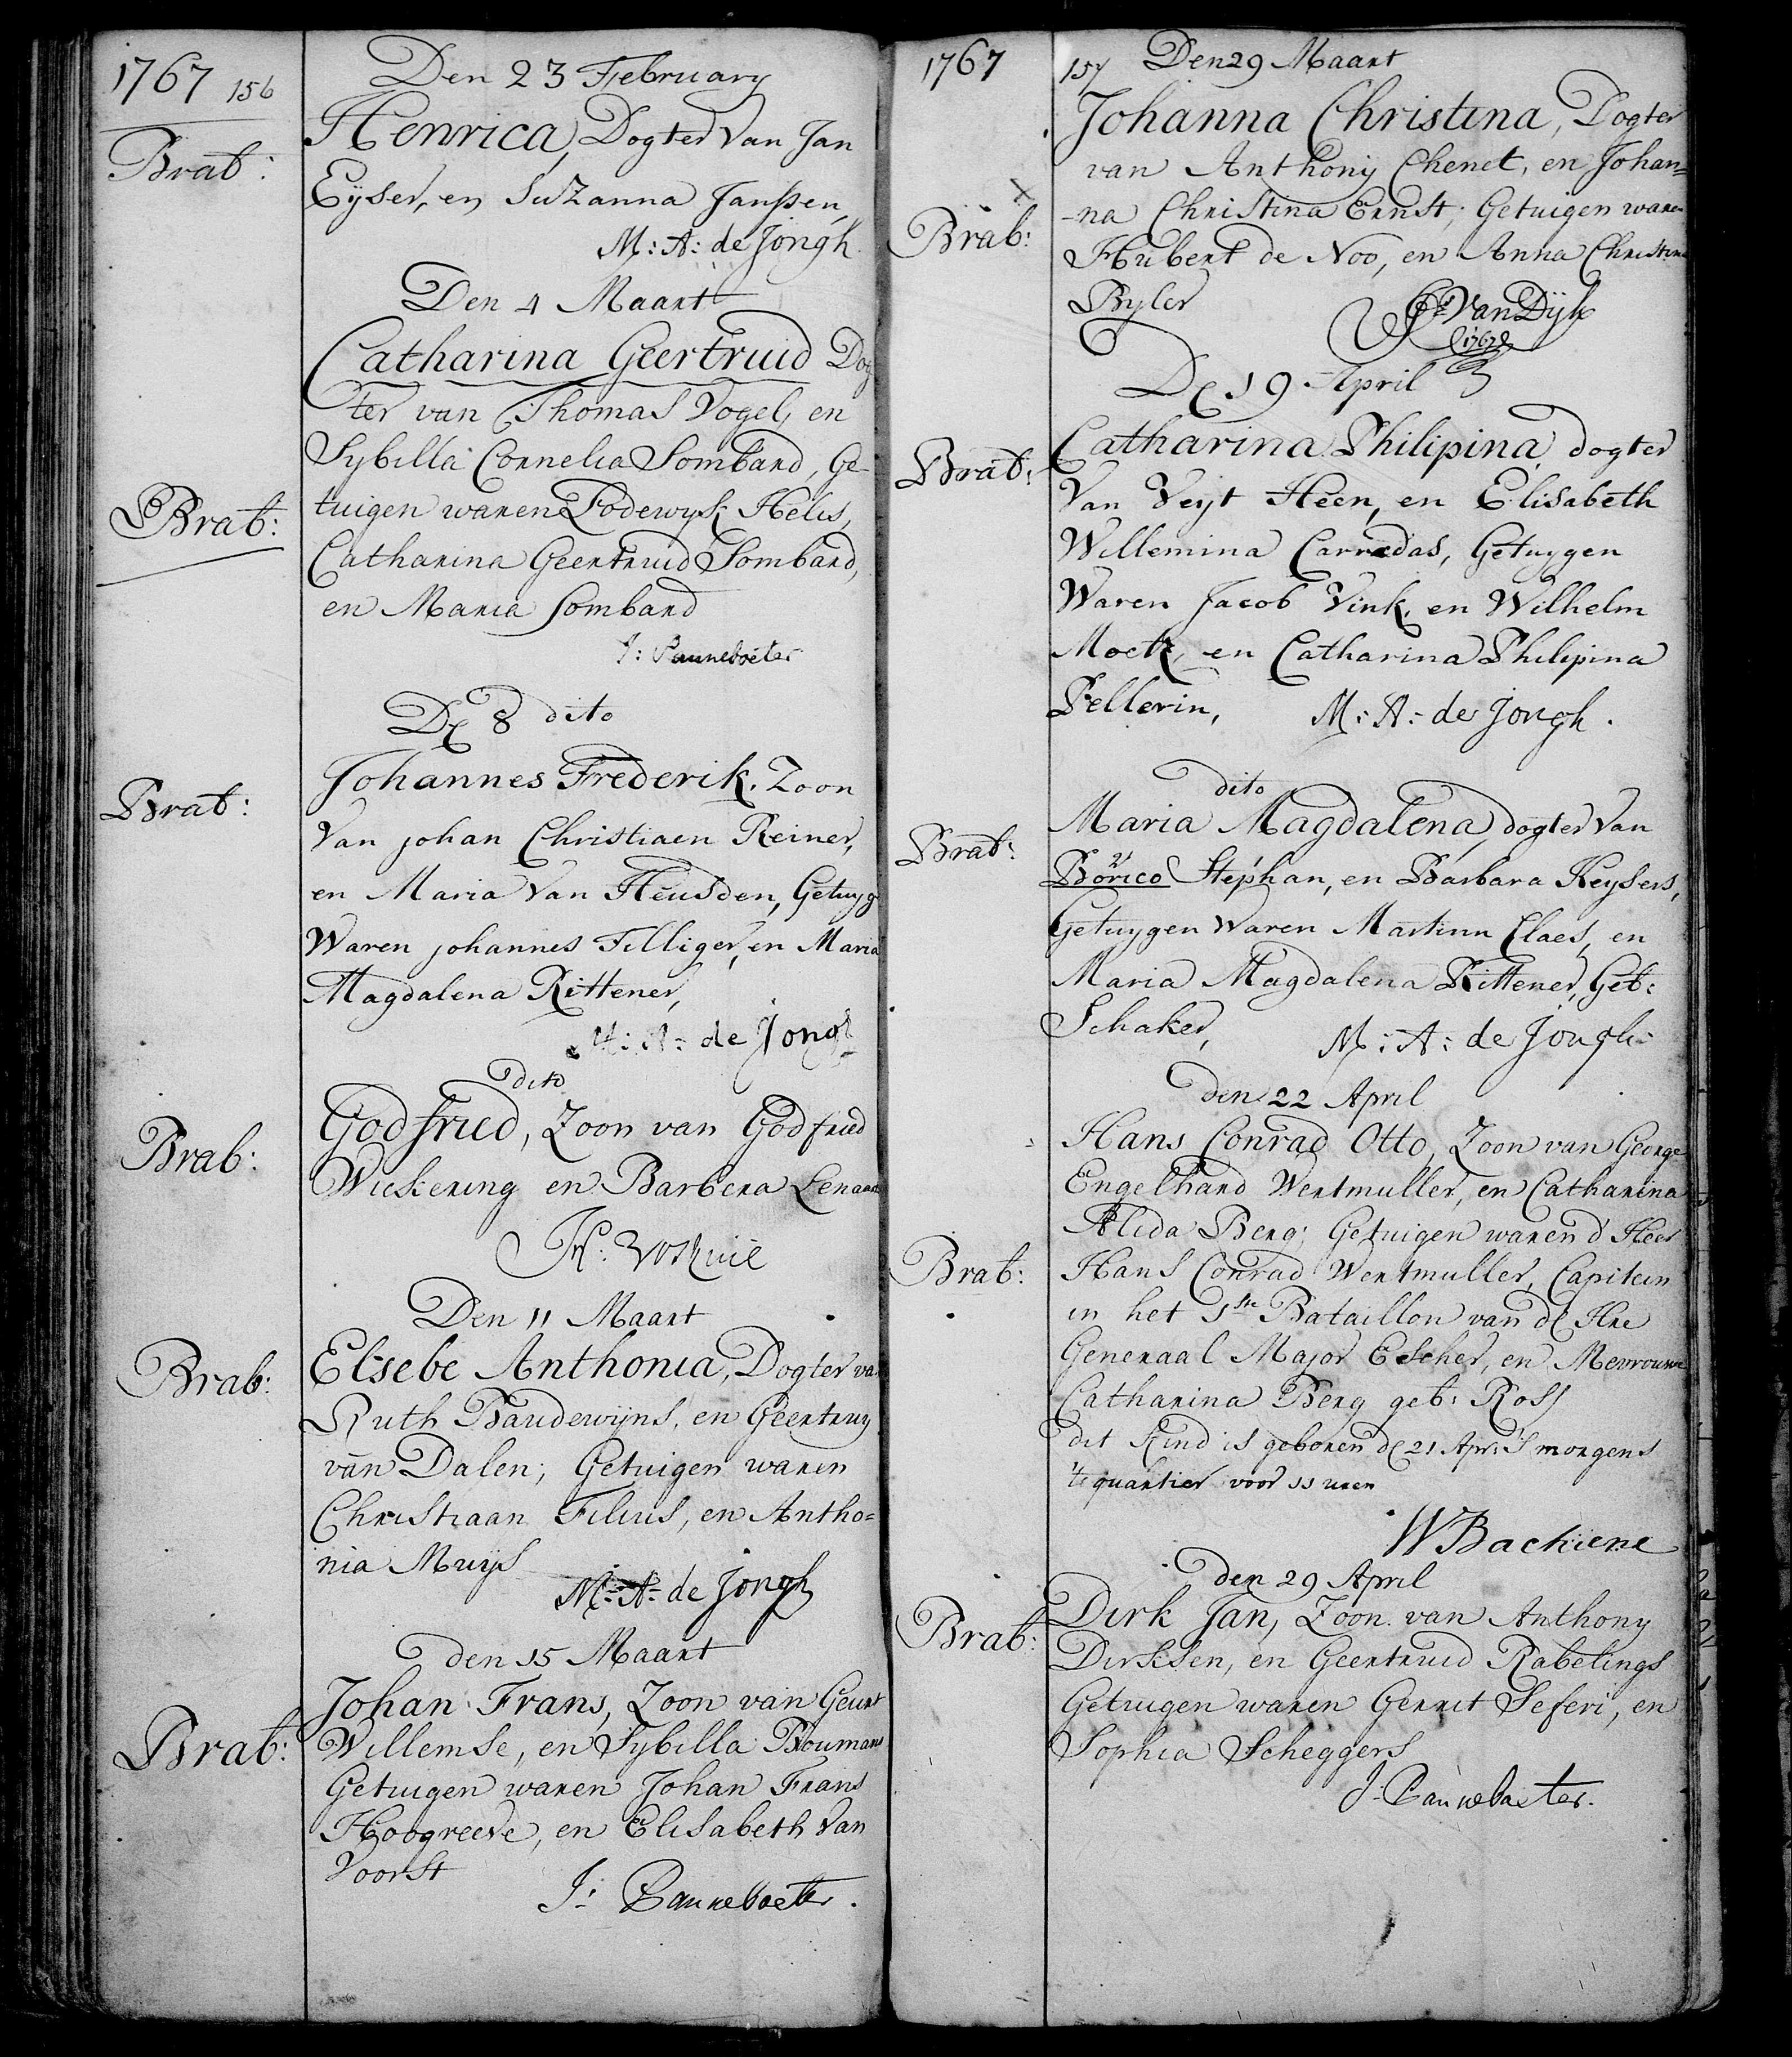 1767 156
Den 23 February
Brab:
Henrica, Dogter van Jan
Eyser, en Suzanna Janssen,
M: A: de Jongh.
Den 4 Maart
Brab:
Catharina Geertruid Dog
ter van Thomas Vogel, en
Sybilla Cornelia Lombard, Ge-
tuigen waren Lodewyk Helis,
Catharina Geertruid Lombard,
en Maria Lombard
J: Panneboeter
De 8 dito
Brab:
Johannes Frederik. Zoon
Van johan Christiaen Reiner,
en Maria Van Heusden, Getuyg
Waren johannes Filliger, en Maria
Magdalena Rittener,
M: A: de Jongh
dito
Brab:
Godfried, Zoon van Godfried
Wiekering en Barbera Lenaar
Den 11 Maart
Brab:
Elsebe Anthonia, Dogter va
Ruth Baudewijns, en Geertruy
van Dalen; Getuigen waren
Christiaan Filius, en Antho=
nia Muys
M: A: de Jongh
den 15 Maart
Brab:
Johan Frans, Zoon van Geurt
Willemse, en Sybilla Boumans
Getuigen waren Johan Frans
Hoogreeve, en Elisabeth Van
Voorst
J: Panneboeter.
1767
157 Den 29 Maart
Brab:
Johanna Christina, Dogter
van Anthony Chenet, en Johan=
-na Christina Ernst; Getuigen waren
Hubert de Noo, en Anna Christina
Byler
Van Dijk
1767
De 19 April
Brab:
Catharina Philipina, dogter
Van Veyt Heen, en Elisabeth
Willemina Carredas, Getuygen
Waren Jacob Vink, en Wilhelm
Moetz, en Catharina Philipina
Pellerin, M: A: de Jongh.
dito
Brab:
Maria Magdalena, dogter Van
Borico Stephan, en Barbara Keysers,
Getuygen Waren Martinu Claes, en
Maria Magdalena Rittener, Geb:
Schaker,
M: A: de Jongh
den 22 April
Brab:
Hans Conrad Otto, Zoon van George
Engelhard Wertmuller, en Catharina
Alida Berg; Getuigen waren d' Heer
Hans Conrad Wertmuller, Capitein
in het 1ste Bataillon van de Hre
Generaal Major Escher, en Mevrouwe
Catharina Berg geb: Ross
dit kind is geboren de 21 Apr: 's morgens
't quartier voor 11 uren
W Backiene
den 29 April
Brab:
Dirk Jan, Zoon van Anthony
Dirksen, en Geertruid Rabelings
Getuigen waren Gerrit Seferi, en
Sophia Scheggers
J: Panneboeter.